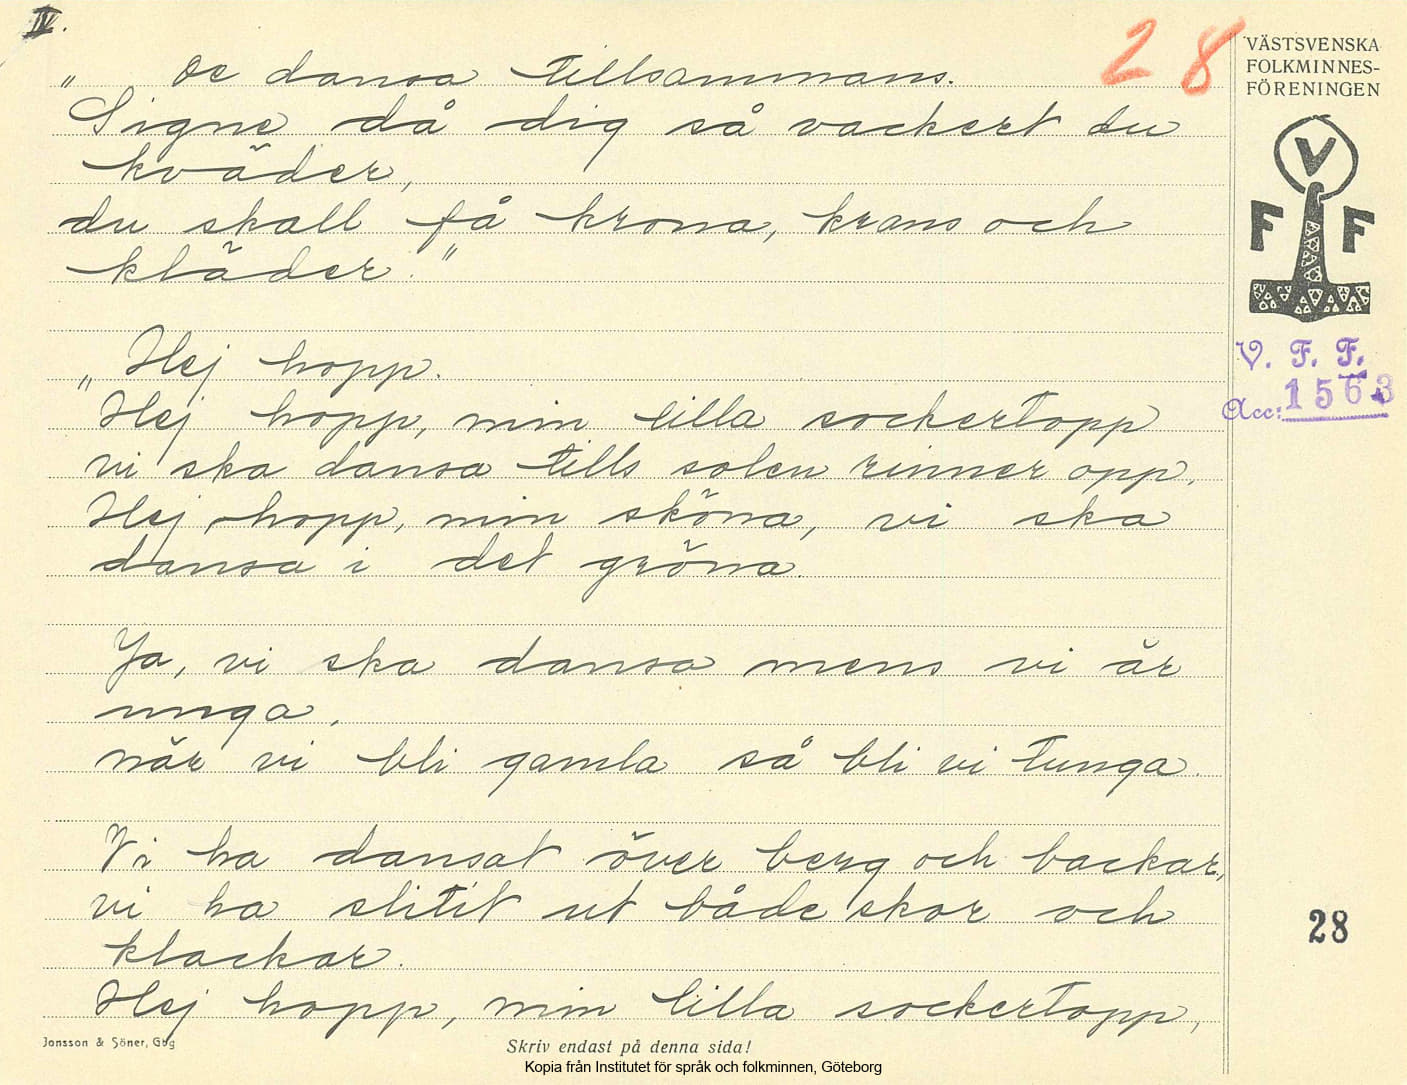 IV.
28
VÄSTSVENSKA
FOLKMINNES-
FÖRENINGEN
V
F F
V. F. F.
Acc: 1563
" De dansa tillsammans.
Signe då dig så vackert du
kväder,
du skall få krona, krans och
kläder."
"Hej hopp.
Hej hopp, min lilla sockertopp
vi ska dansa tills solen rinner opp.
Hej hopp, min sköna, vi ska
dansa i det gröna.
Ja, vi ska dansa mens vi är
unga,
när vi bli gamla så bli vi tunga.
Vi ha dansat över berg och backar,
vi ha slitit ut både skor och
klackar.
Hej hopp, min lilla sockertopp,
28
Jonsson & Söner, Gbg
Skriv endast på denna sida!
Kopia från Institutet för språk och folkminnen, Göteborg